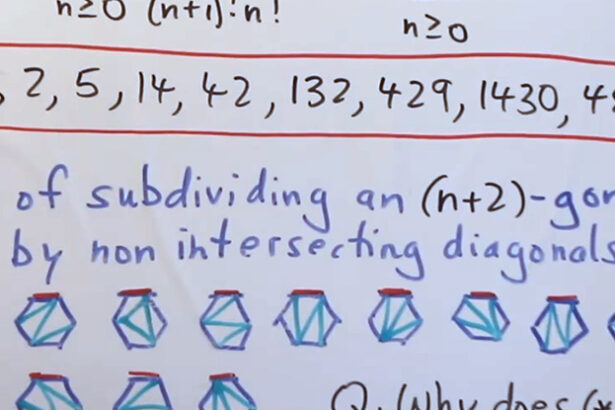 n≥0 (n+1)!n!
n≥0
, 2, 5, 14, 42, 132, 429, 1430, 4
of subdividing an (n+2)-gon
by non intersecting diagonals
Q. Why does